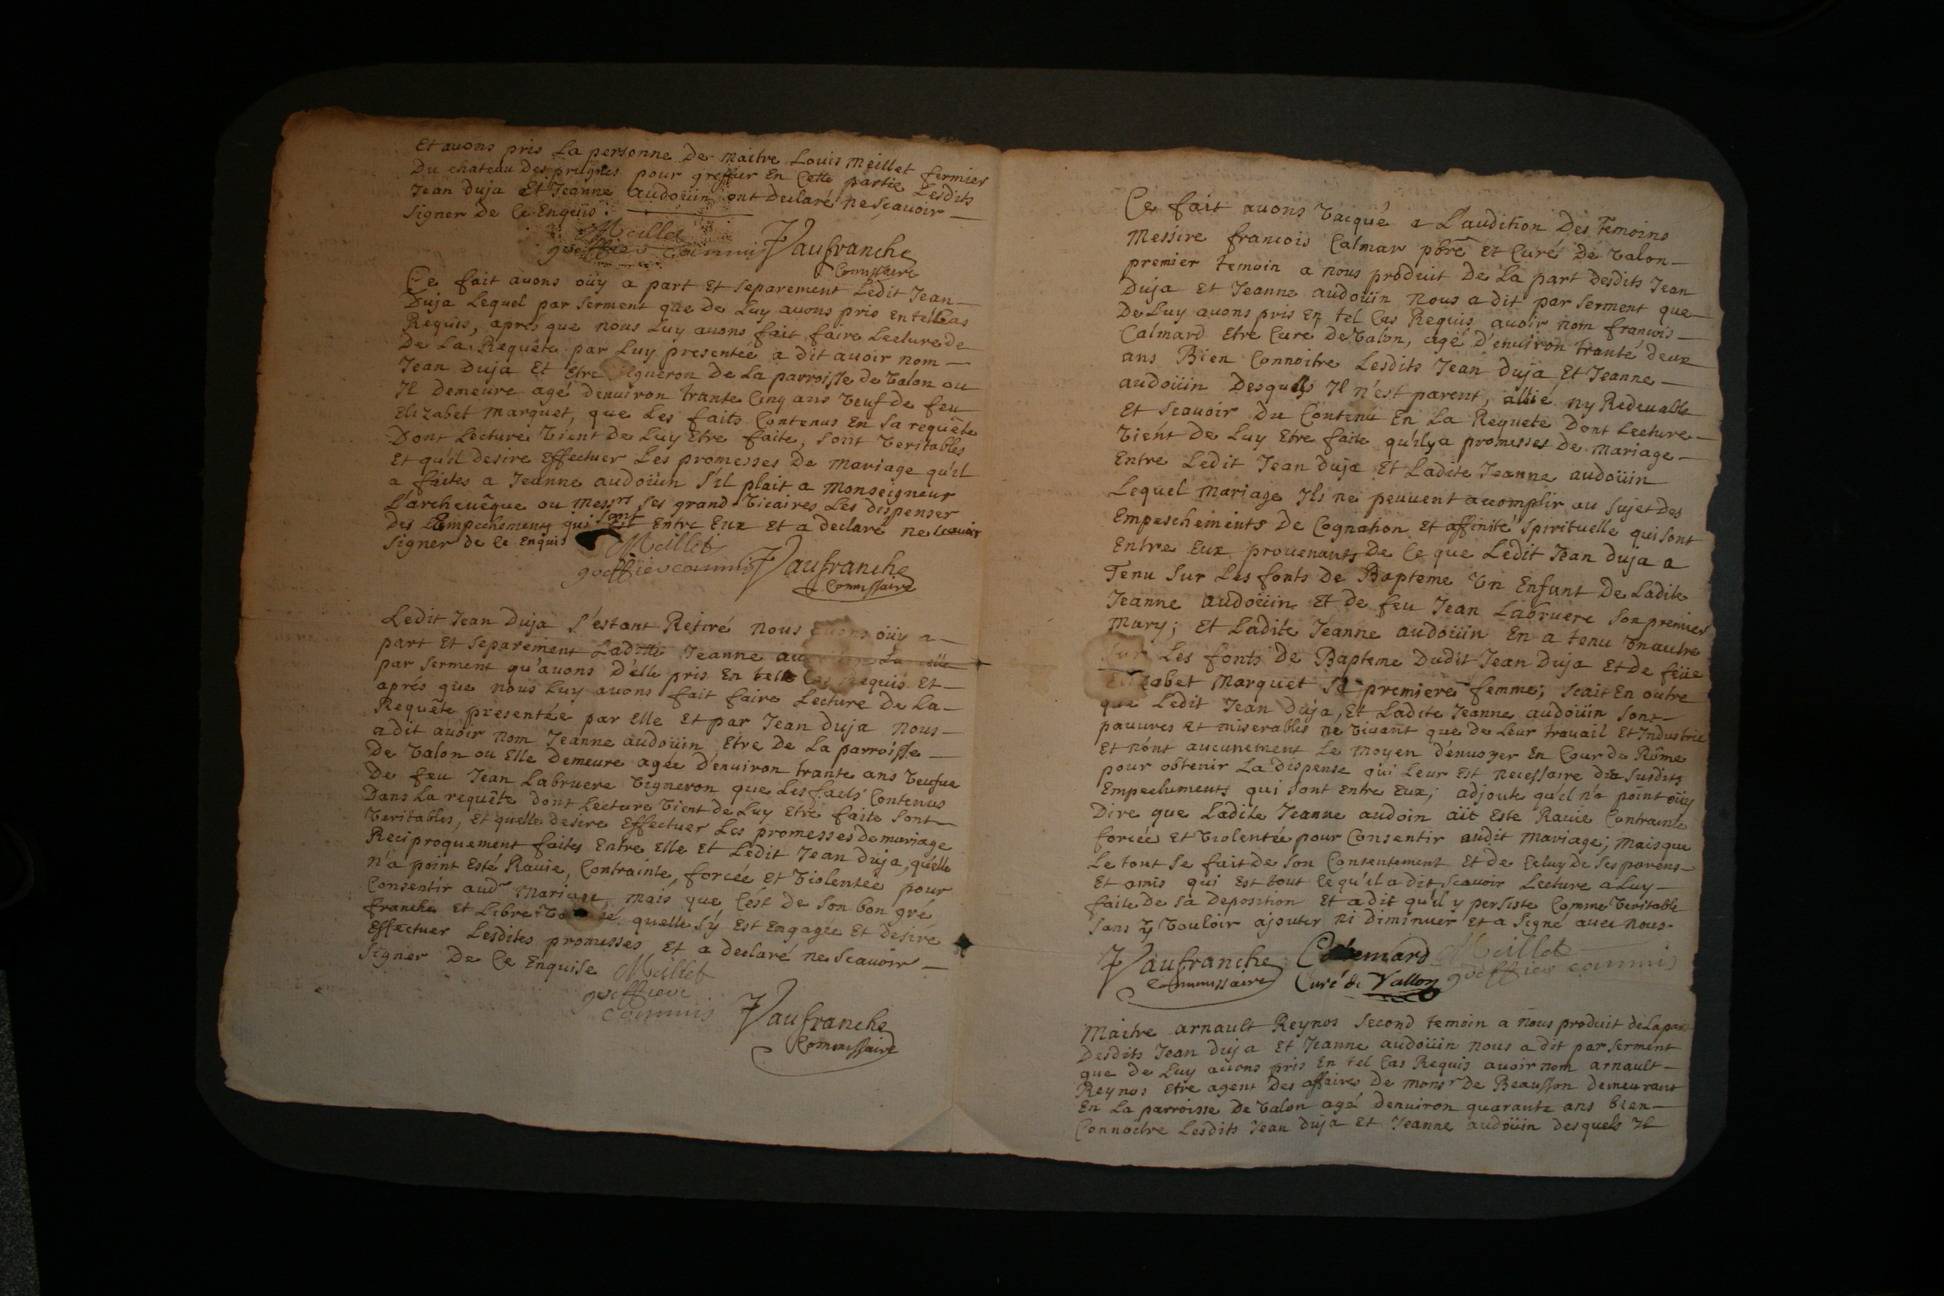 Et avons pris La personne De maitre Louis Meillet fermier
Du chateau Des prugnes pour greffier En Cette partie Lesdits
Jean Duja Et Jeanne audoüin ont Declaré ne Scavoir
Signer De Ce Enquis.
Meillet Vaufranche
greffier commis Commissaire
Ce fait avons oüy a part Et separement Ledit Jean
Duja Lequel par serment que De Luy avons pris En tel Cas
Requis, aprés que nous Luy avons fait faire Lecture de
De La Requête par Luy presentée a dit avoir nom
Jean Duja Et Etre vigneron De La parroisse de Valon ou
Il Demeure agé denviron trante Cinq ans Veuf De feu
Elizabet Marquet, que Les faits Contenus En sa requête
Dont Lecture Vient De Luy Etre faite, sont Veritables
Et qu'il desire Effectuer Les promesses De mariage qu'il
a faites a Jeanne audoüin s'il plait a Monseigneur
L'archevêque ou Messrs ses grand Vicaires Les dispenser
Des Empechements qui sont Entre Eux Et a declaré ne scavoir
Signer de Ce Enquis
Meillet Vaufranche
greffier commis Commissaire
Ledit Jean Duja s'estant Retiré nous avons oüy a
part Et separement Laditte Jeanne
par serment qu'avons D'elle pris En telle Cas Requis Et
aprés que nous Luy avons fait faire Lecture De La
Requête presentée par Elle Et par Jean Duja nous
a dit avoir nom Jeanne audoüin, Etre De La parroisse
De Valon ou Elle Demeure agée d'environ trante ans Veufue
De feu Jean Labruere Vigneron que Les faits Contenus
Dans La requête dont Lecture Vient de Luy Etre faite sont
Veritables, Et quelle desire Effectuer Les promesses De mariage
Reciproquement faites Entre Elle Et Ledit Jean Duja, quelle
n'a point Esté Ravie, Contrainte, forcée Et Violentée pour
Consentir audt Mariage mais que C'est de Son bon gré
franche Et Libre quelle s'y Est Engagée Et desire
Effectuer Lesdites promesses Et a declaré ne scavoir
Signer De Ce Enquise Meillet
greffier
commis Vaufranche
Commissaire
Ce fait avons Vacqué a L'audition Des Temoins
Messire francois Calmar pbre Et Curé De Valon
premier temoin a nous produit De La part Desdits Jean
Duja Et Jeanne audoüin nous a dit par serment que
De Luy avons pris En tel Cas Requis avoir nom francois
Calmard Etre Curé De Valon, agé d'environ trante deux
ans Bien Connoitre Lesdits Jean Duja Et Jeanne
audoüin Desquels Il n'est parent, allié ny Redevable
Et scavoir Du Contenu En La Requete Dont Lecture
Vient De Luy Etre faite qu'il y a promesses De Mariage
Entre Ledit Jean Duja Et Ladite Jeanne audoüin
Lequel mariage Ils ne peuvent acomplir au Sujet des
Empeschements De Cognation Et affinité Spirituelle qui sont
Entre Eux provenants De Ce que Ledit Jean Duja a
Tenu Sur Les fonts De Bapteme Un Enfant De Ladite
Jeanne audoüin Et De feu Jean Labruere Son premier
Mary; Et Ladite Jeanne audoüin En a tenu Un autre
Sur Les fonts De Bapteme Dudit Jean Duja Et De feüe
Elizabet Marquet Sa premiere femme; scait En outre
que Ledit Jean Duja, Et Ladite Jeanne audoüin sont
pauvres Et miserables ne Vivant que De Leur travail Et Industrie
Et n'ont aucunement Le moyen d'envoyer En Cour De Rôme
pour obtenir La Dispense qui Leur Est necessaire des susdits
Empechements qui sont Entre Eux; adjoute qu'il n'a point oüy
Dire que Ladite Jeanne audoin ait Esté Ravie Contrainte
forcée Et Violentée pour Consentir audit Mariage; mais que
Le tout se fait De Son Consentement Et De Celuy De Ses parens
Et amis qui Est tout Ce qu'il a dit scavoir Lecture a Luy
faite De Sa Deposition Et a dit qu'il y persiste Comme Veritable
Sans y Vouloir ajouter ni Diminuer Et a Signé avec nous.
Vaufranche Meillet
Commissaire Curé de Vallon greffier commis
Maitre arnault Reynos Second temoin a nous produit de La part
Desdits Jean Duja Et Jeanne audoüin nous a dit par Serment
que De Luy avons pris En tel Cas Requis avoir nom arnault
Reynos Etre agent Des affaires De Monsr De Beausson demeurant
En La parroisse De Valon agé denviron quarante ans bien
Connoitre Lesdits Jean Duja Et Jeanne audoüin desquels Il